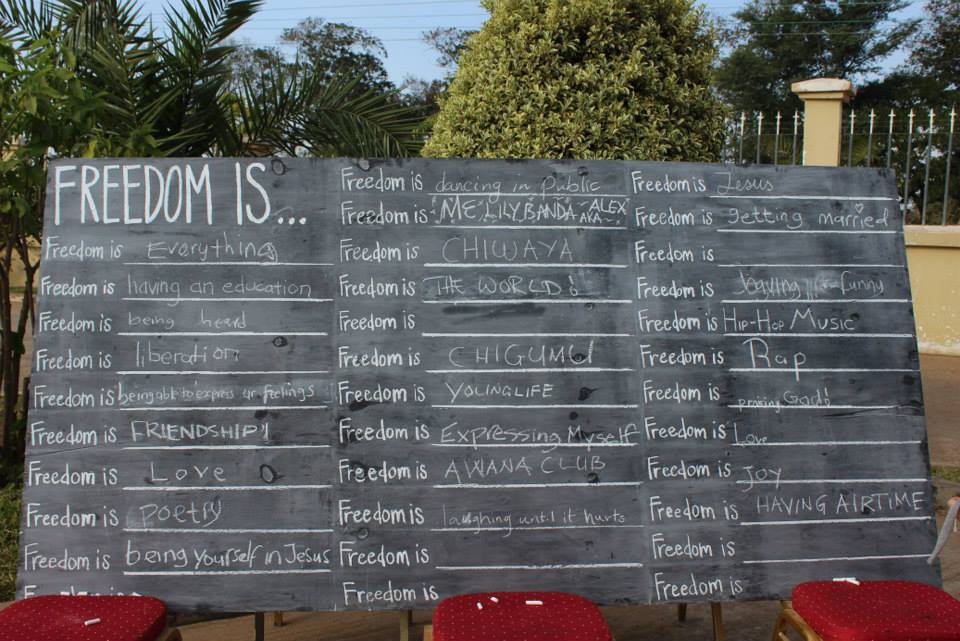 FREEDOM IS...
Freedom is Everything
Freedom is having an education
Freedom is being heard
Freedom is liberation
Freedom is being able to express ur feelings
Freedom is FRIENDSHIP!
Freedom is Love
Freedom is poetry
Freedom is being yourself in Jesus
Freedom is dancing in public
Freedom is ME LILY BANDA AKA ALEX
Freedom is CHIWAYA
Freedom is THE WORLD!
Freedom is
Freedom is CHIGUMU
Freedom is YOUNGLIFE
Freedom is Expressing Myself
Freedom is AWANA CLUB
Freedom is laughing until it hurts
Freedom is
Freedom is
Freedom is Jesus
Freedom is getting married
Freedom is
Freedom is funny
Freedom is HIP-HOP MUSIC
Freedom is Rap
Freedom is praising God!
Freedom is Love
Freedom is JOY
Freedom is HAVING AIRTIME
Freedom is
Freedom is